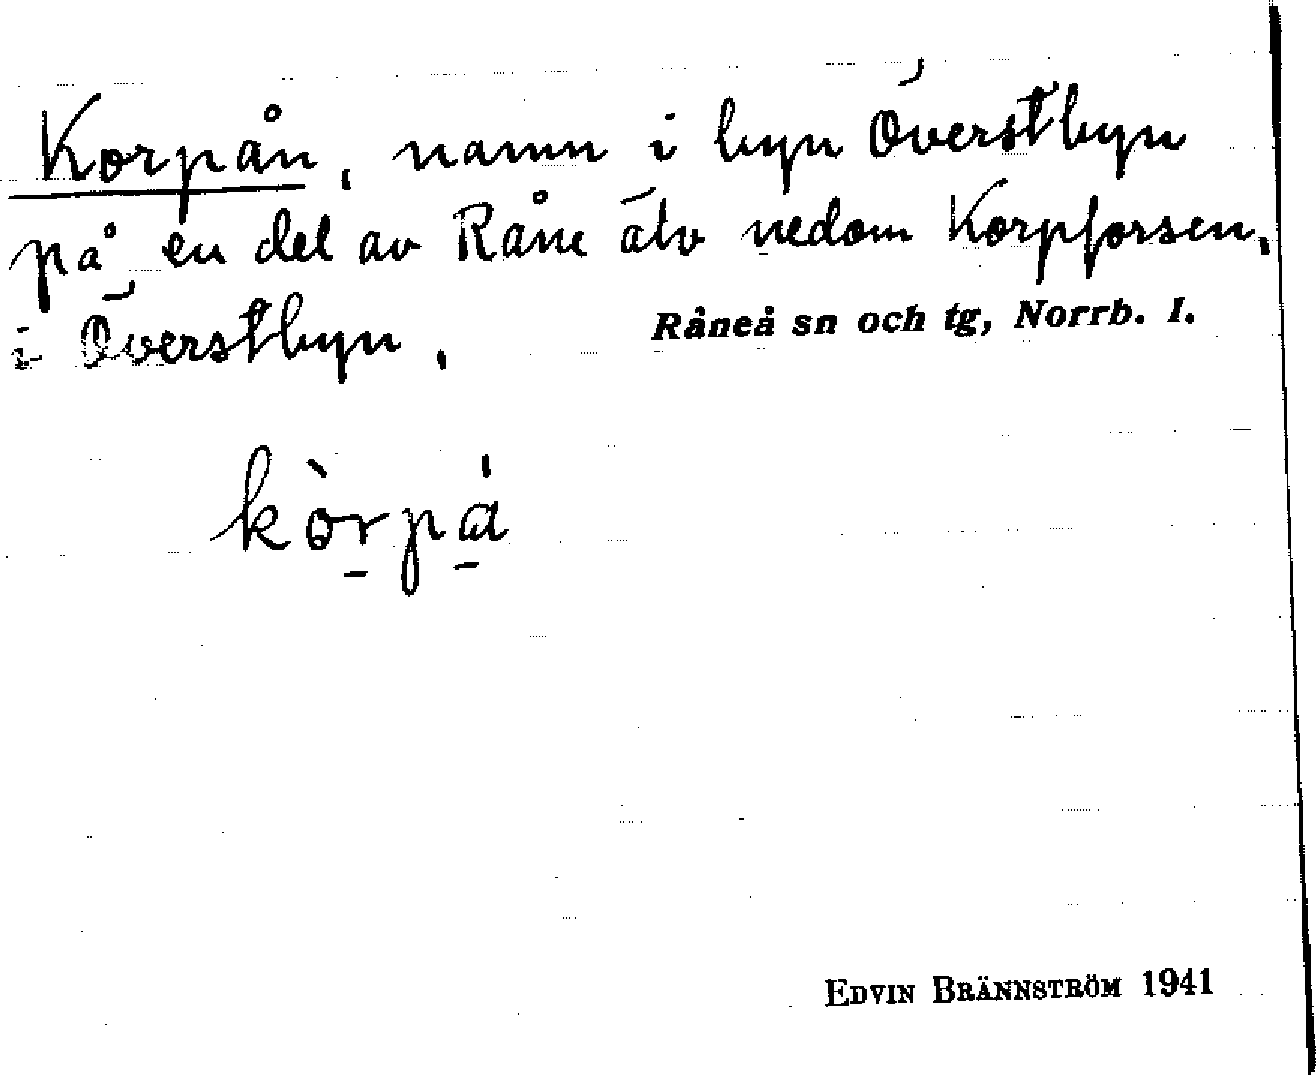 Korpån, namn i byn Överstbyn
på en del av Råne älv nedom Korpforsen,
i Överstbyn.
Råneå sn och tg, Norrb. l.
kòrpá
EDVIN BRÄNNSTRÖM 1941